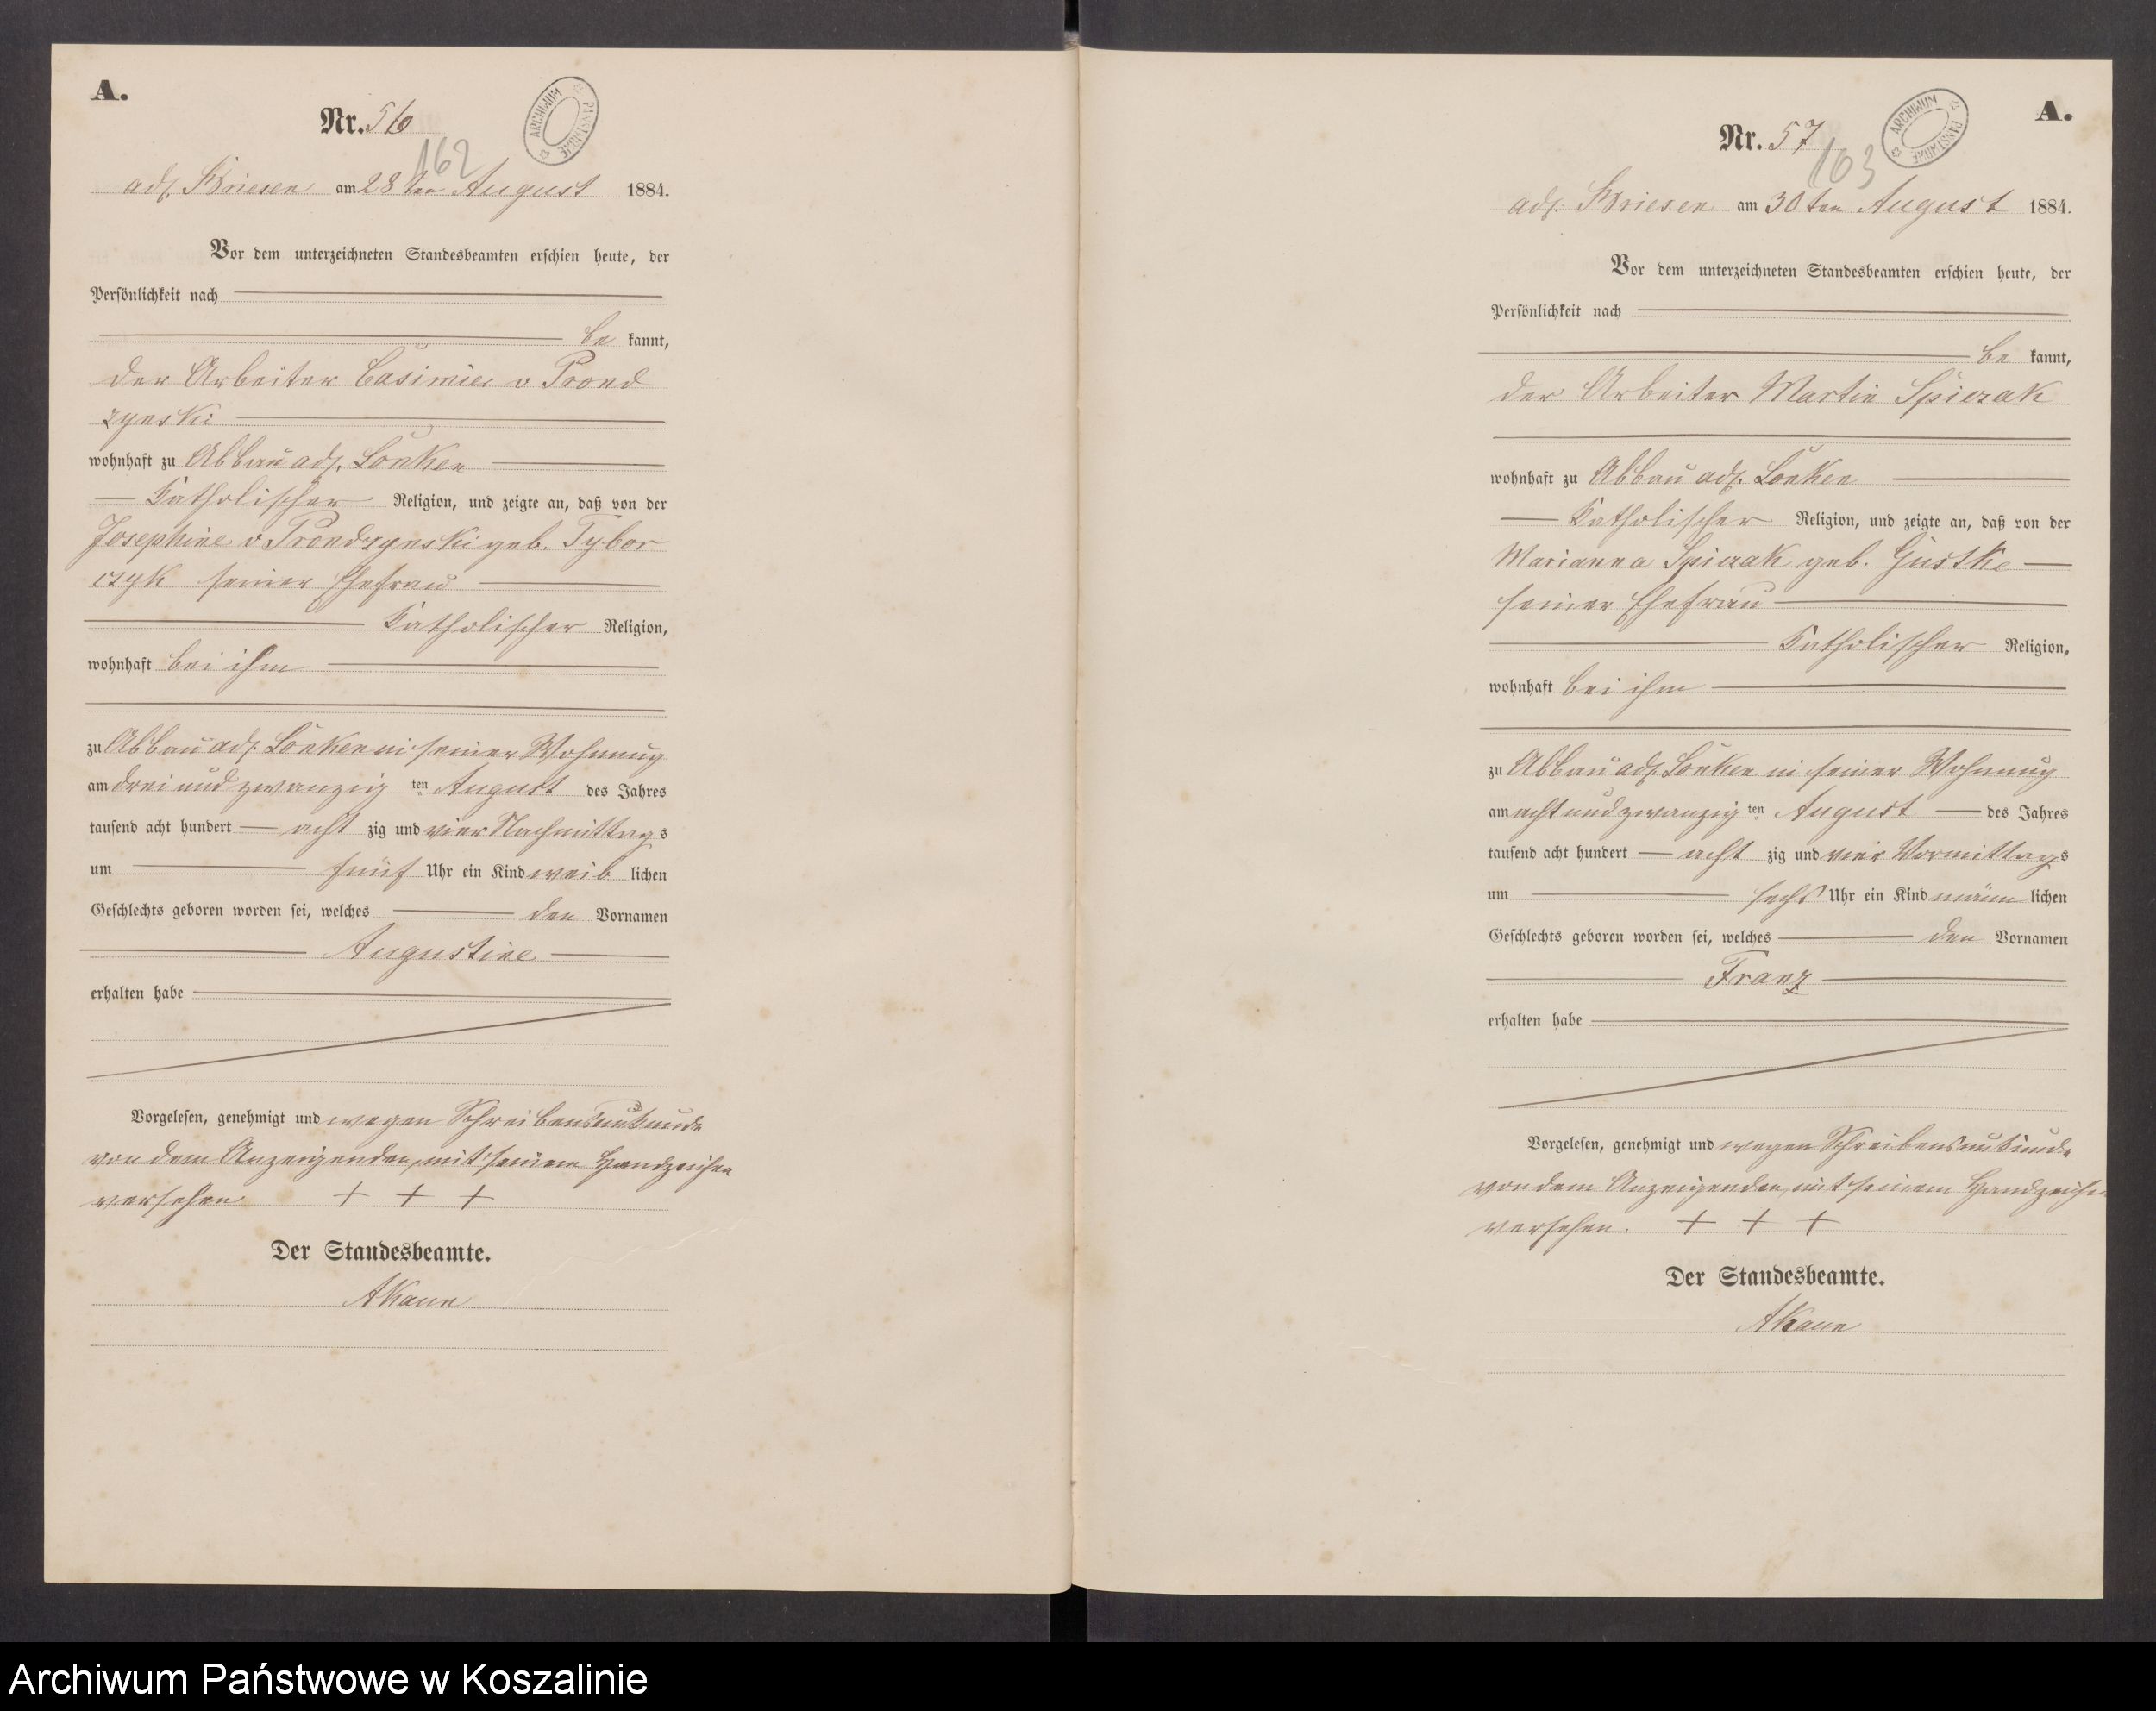 A.
Nr. 56
ARCHIWUM PAŃSTWOWE
162
adl. Briesen am 28ten August 1884.
Vor dem unterzeichneten Standesbeamten erschien heute, der
Persönlichkeit nach
be kannt,
der Arbeiter Casimir v Prond
zynski
wohnhaft zu Abbau adl. Lonken
Katholischer Religion, und zeigte an, daß von der
Josephine v Prondzynski geb. Tybor
czyk seiner Ehefrau
Katholischer Religion,
wohnhaft bei ihm
zu Abbau adl. Lonken in seiner Wohnung
am drei und zwanzig ten August des Jahres
tausend acht hundert acht zig und vier Nachmittags
um fünf Uhr ein Kind weib lichen
Geschlechts geboren worden sei, welches den Vornamen
Augustine
erhalten habe
Vorgelesen, genehmigt und wegen Schreibensunkunde
von dem Anzeigenden, mit seinem Handzeichen
versehen + + +
Der Standesbeamte.
AKaun
A.
Nr. 57
ARCHIWUM PAŃSTWOWE
163
adl. Briesen am 30ten August 1884.
Vor dem unterzeichneten Standesbeamten erschien heute, der
Persönlichkeit nach
be kannt,
der Arbeiter Martin Spiczak
wohnhaft zu Abbau adl. Lonken
Katholischer Religion, und zeigte an, daß von der
Marianna Spiczak geb. Gustke
seiner Ehefrau
Katholischer Religion,
wohnhaft bei ihm
zu Abbau adl. Lonken in seiner Wohnung
am acht und zwanzig ten August des Jahres
tausend acht hundert acht zig und vier Vormittags
um sechs Uhr ein Kind männ lichen
Geschlechts geboren worden sei, welches den Vornamen
Franz
erhalten habe
Vorgelesen, genehmigt und wegen Schreibensunkunde
von dem Anzeigenden, mit seinem Handzeichen
versehen. + + +
Der Standesbeamte.
AKaun
Archiwum Państwowe w Koszalinie